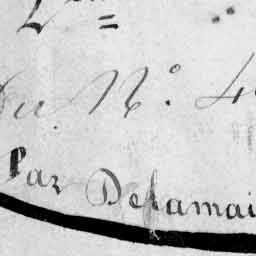 Du N° 4
Par Delamai